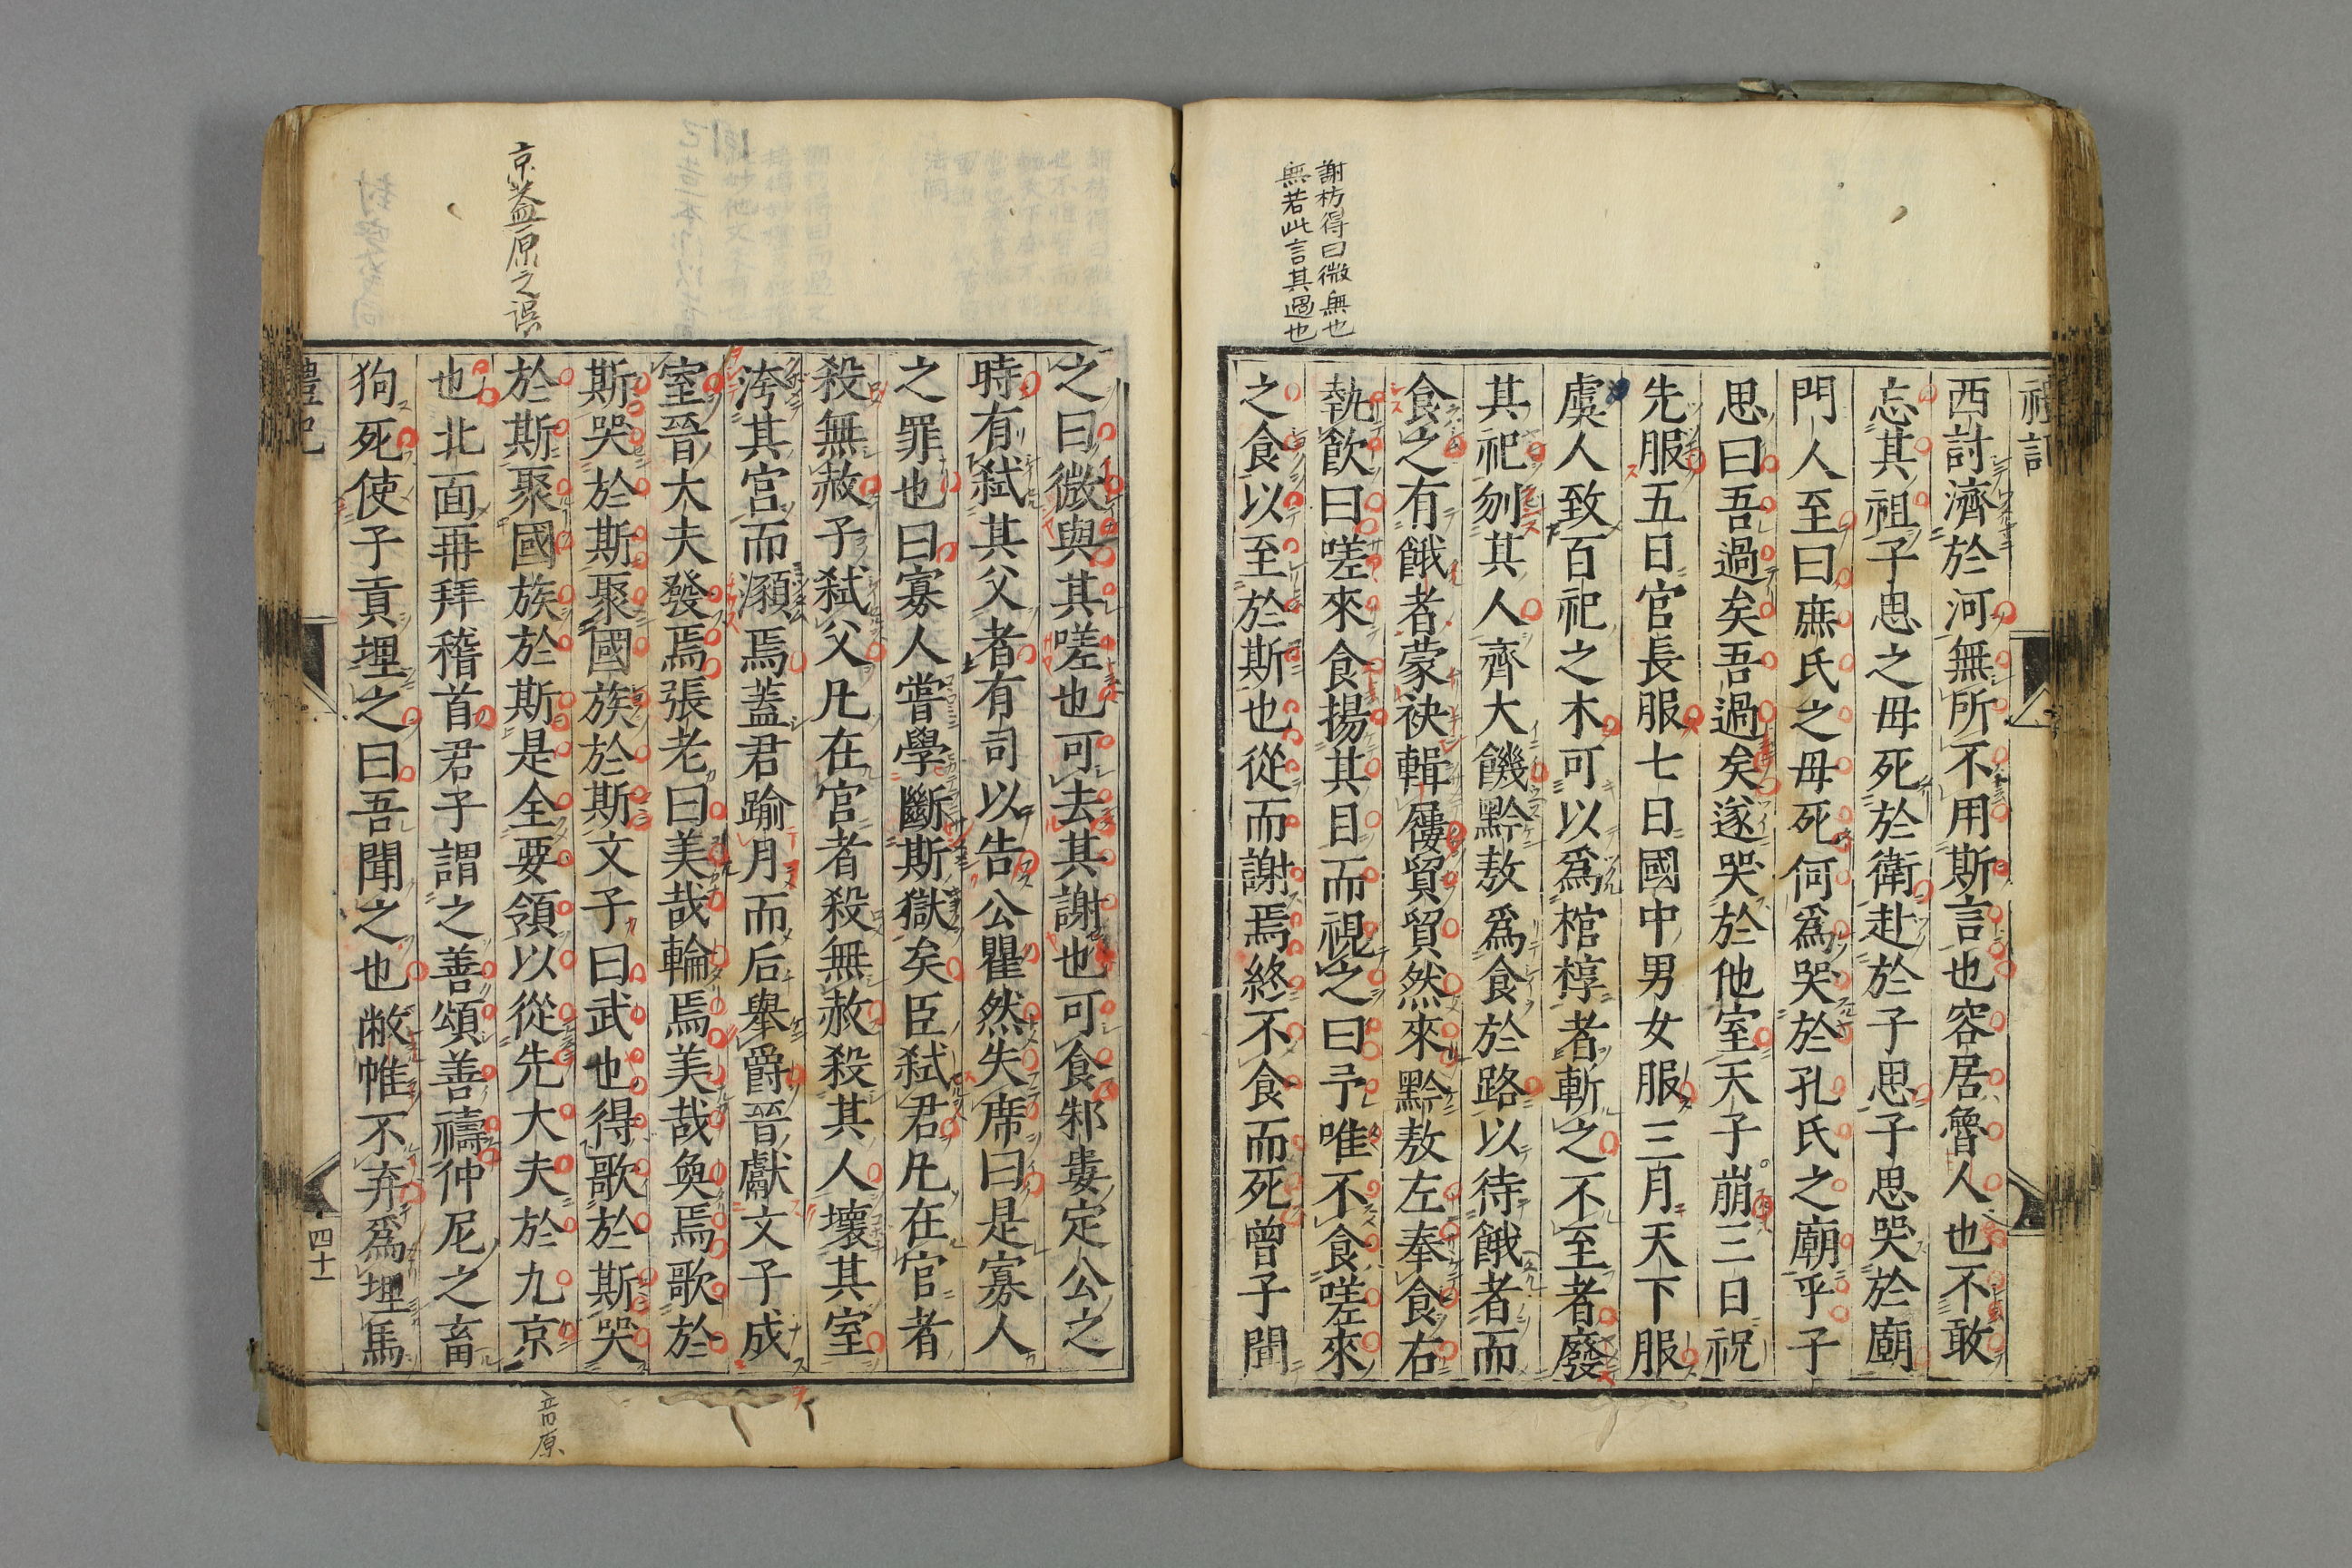 謝枋得曰微無也
無若此言其過也
禮記
西討濟於河無所不用斯言也容居魯人也不敢
忘其祖子思之母死於衛赴於子思子思哭於廟
門人至曰庶氏之母死何爲哭於孔氏之廟乎子
思曰吾過矣吾過矣遂哭於他室天子崩三日祝
先服五日官長服七日國中男女服三月天下服
虞人致百祀之木可以爲棺椁者斬之不至者廢
其祀刎其人齊大饑黔敖爲食於路以待餓者而
食之有餓者蒙袂輯屨貿貿然來黔敖左奉食右
執飲曰嗟來食揚其目而視之曰予唯不食嗟來
之食以至於斯也從而謝焉終不食而死曾子聞
京蓋原之誤
之曰微與其嗟也可去其謝也可食邾婁定公之
時有弑其父者有司以告公瞿然失席曰是寡人
之罪也曰寡人嘗學斷斯獄矣臣弑君凡在官者
殺無赦子弑父凡在宮者殺無赦殺其人壞其室
洿其宮而瀦焉蓋君踰月而后舉爵晉獻文子成
室晉大夫發焉張老曰美哉輪焉美哉奐焉歌於
斯哭於斯聚國族於斯文子曰武也得歌於斯哭
於斯聚國族於斯是全要領以從先大夫於九京
也北面再拜稽首君子謂之善頌善禱仲尼之畜
狗死使子貢埋之曰吾聞之也敝帷不弃爲埋馬
禮記
四十一
音原